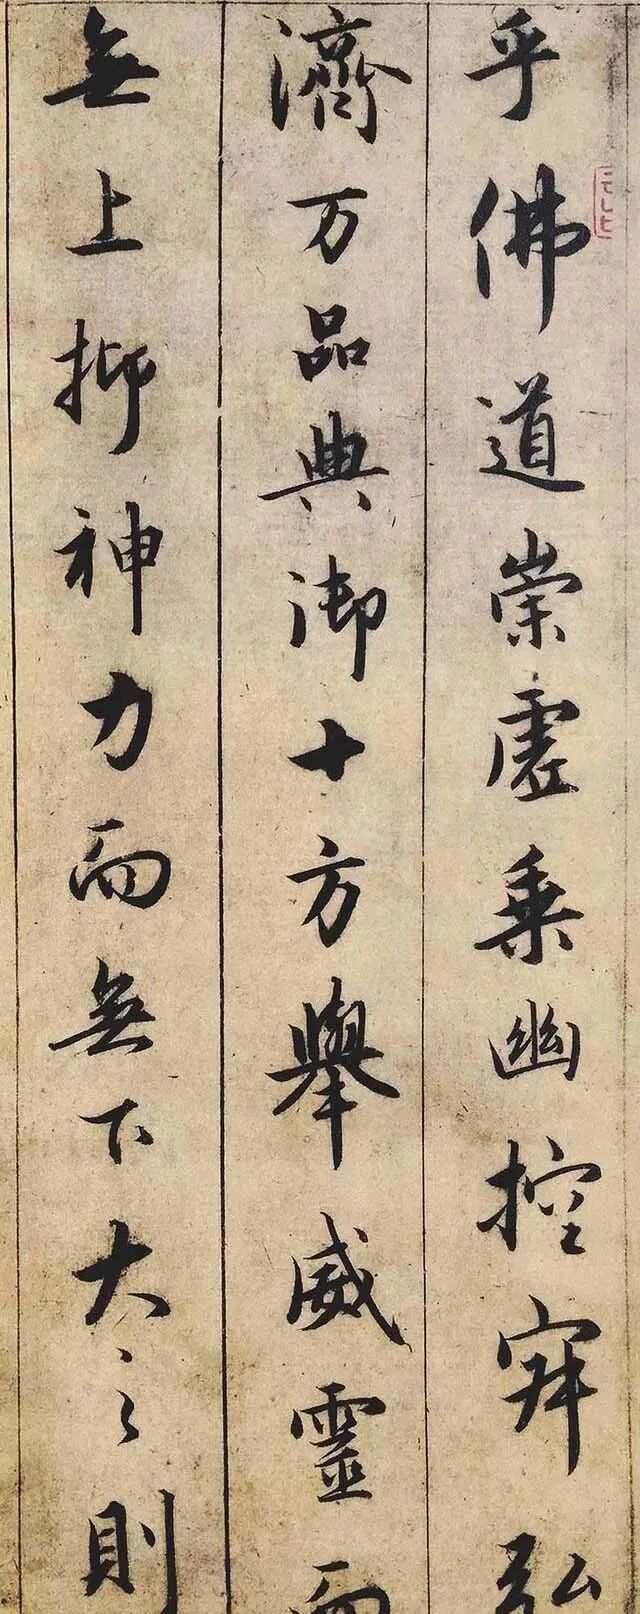 乎佛道崇虛乘幽控寂弘
濟万品典御十方舉威靈而
無上抑神力而無下大之則